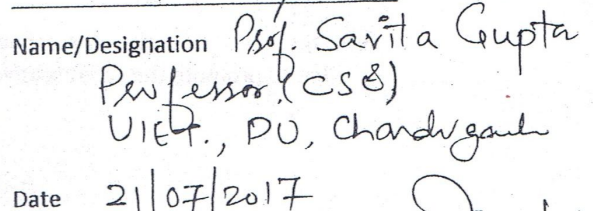 Name/Designation Prof. Savita Gupta
Professor, (CSE)
UIET., PU, Chandigarh
Date 21/07/2017